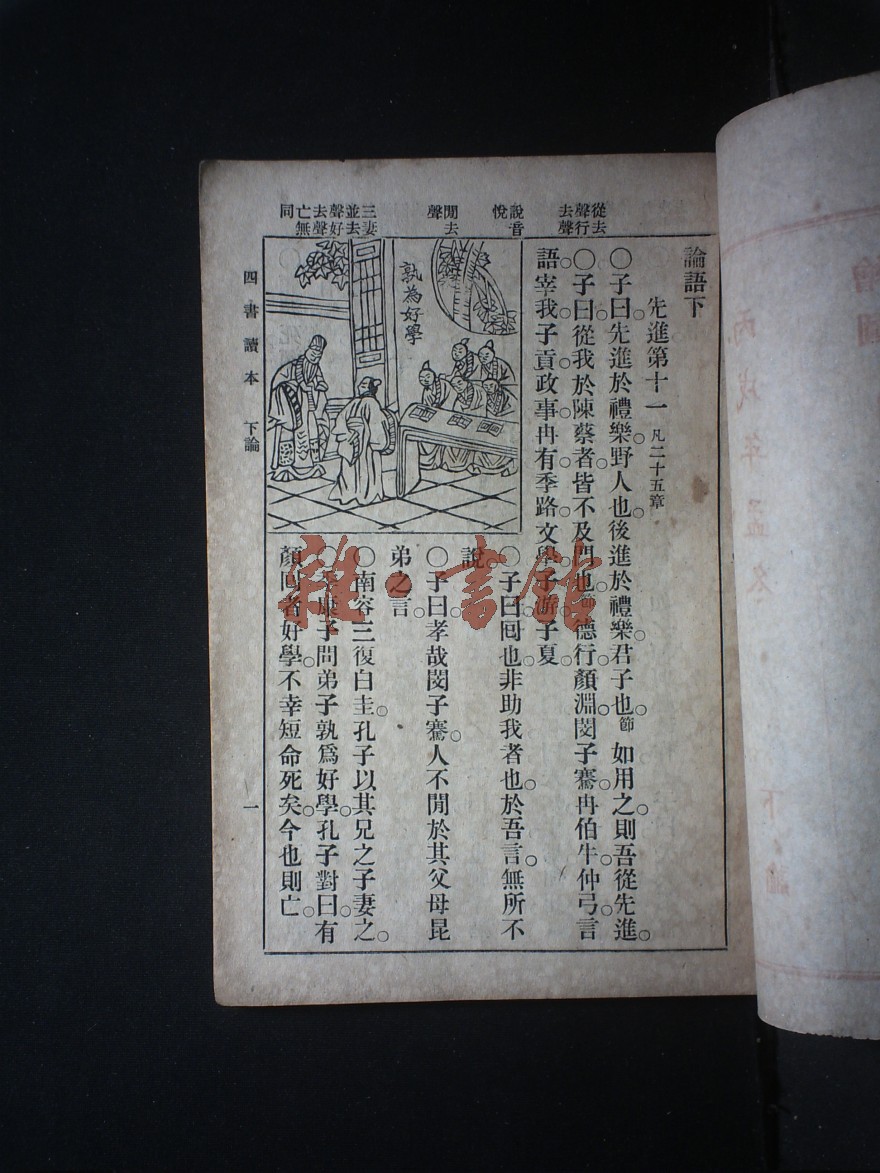 丙戌年孟冬
下論
論語下
先進第十一 凡二十五章
○子曰先進於禮樂野人也後進於禮樂君子也節如用之則吾從先進
○子曰從我於陳蔡者皆不及門也節德行顏淵閔子騫冉伯牛仲弓言
語宰我子貢政事冉有季路文學子游子夏
○子曰回也非助我者也於吾言無所不
說
○子曰孝哉閔子騫人不閒於其父母昆
弟之言
○南容三復白圭孔子以其兄之子妻之
○季康子問弟子孰爲好學孔子對曰有
顏回者好學不幸短命死矣今也則亡
從去
聲行
去聲
說音
悅
閒去
聲
三妻
並去
聲好
去聲
亡無
同
孰為好學
四書讀本 下論 一
雅·書館